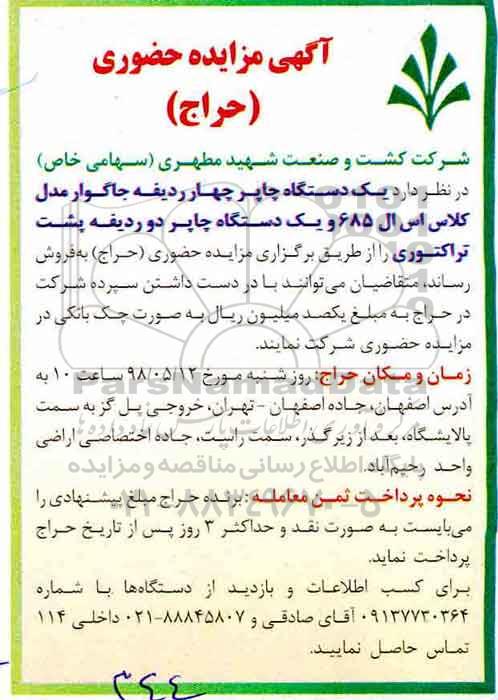 آگهی مزایده حضوری
(حراج)
شرکت کشت و صنعت شهید مطهری (سهامی خاص)
در نظر دارد یک دستگاه چاپر چهار ردیفه جاگوار مدل
کلاس اس ال ۶۸۵ و یک دستگاه چاپر دو ردیفه پشت
تراکتوری را از طریق برگزاری مزایده حضوری (حراج) به‌فروش
رساند، متقاضیان می‌توانند با در دست داشتن سپرده شرکت
در حراج به مبلغ یکصد میلیون ریال به صورت چک بانکی در
مزایده حضوری شرکت نمایند.
زمان و مکان حراج: روز شنبه مورخ ۹۸/۰۵/۱۲ ساعت ۱۰ به
آدرس اصفهان، جاده اصفهان - تهران، خروجی پل گز به سمت
پالایشگاه، بعد از زیرگذر، سمت راست، جاده اختصاصی اراضی
واحد رحیم‌آباد.
نحوه پرداخت ثمن معامله: برنده حراج مبلغ پیشنهادی را
می‌بایست به صورت نقد و حداکثر ۳ روز پس از تاریخ حراج
پرداخت نماید.
برای کسب اطلاعات و بازدید از دستگاه‌ها با شماره
۰۹۱۳۷۷۳۰۳۶۴ آقای صادقی و ۸۸۸۴۵۸۰۷-۰۲۱ داخلی ۱۱۴
تماس حاصل نمایید.
ParsNamadData
پایگاه اطلاع رسانی مناقصه و مزایده
۰۲۱-۸۸۳۴۹۶۷۰-۵
۳۴۴